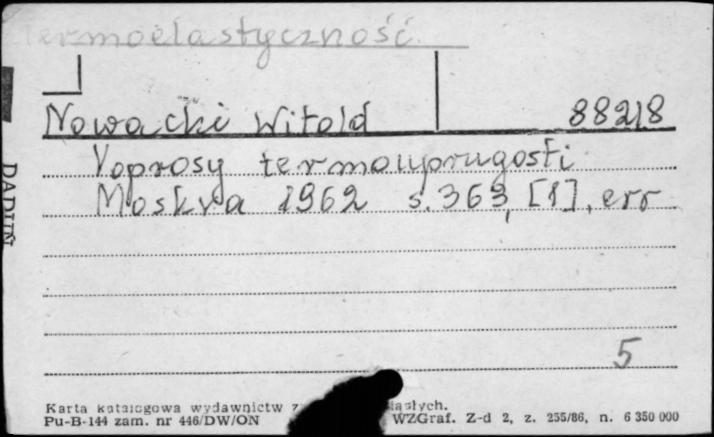 Termoelastyczność
Nowacki Witold 88218
Voprosy termouprugosti
Moskva 1962 s.363, [1], err
5
Karta katalogowa wydawnictw
Pu-B-144 zam. nr 446/DW/ON WZGraf. Z-d 2, z. 255/86, n. 6 350 000